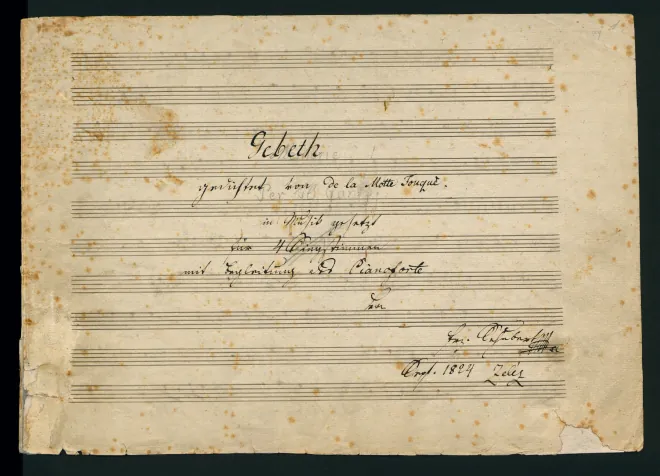 Gebeth
gedichtet von de la Motte Fouqué.
in Musik gesetzt
für 4 Singstimmen
mit Begleitung des Pianoforte
von
Frz. Schubert
Sept. 1824 Zeléz